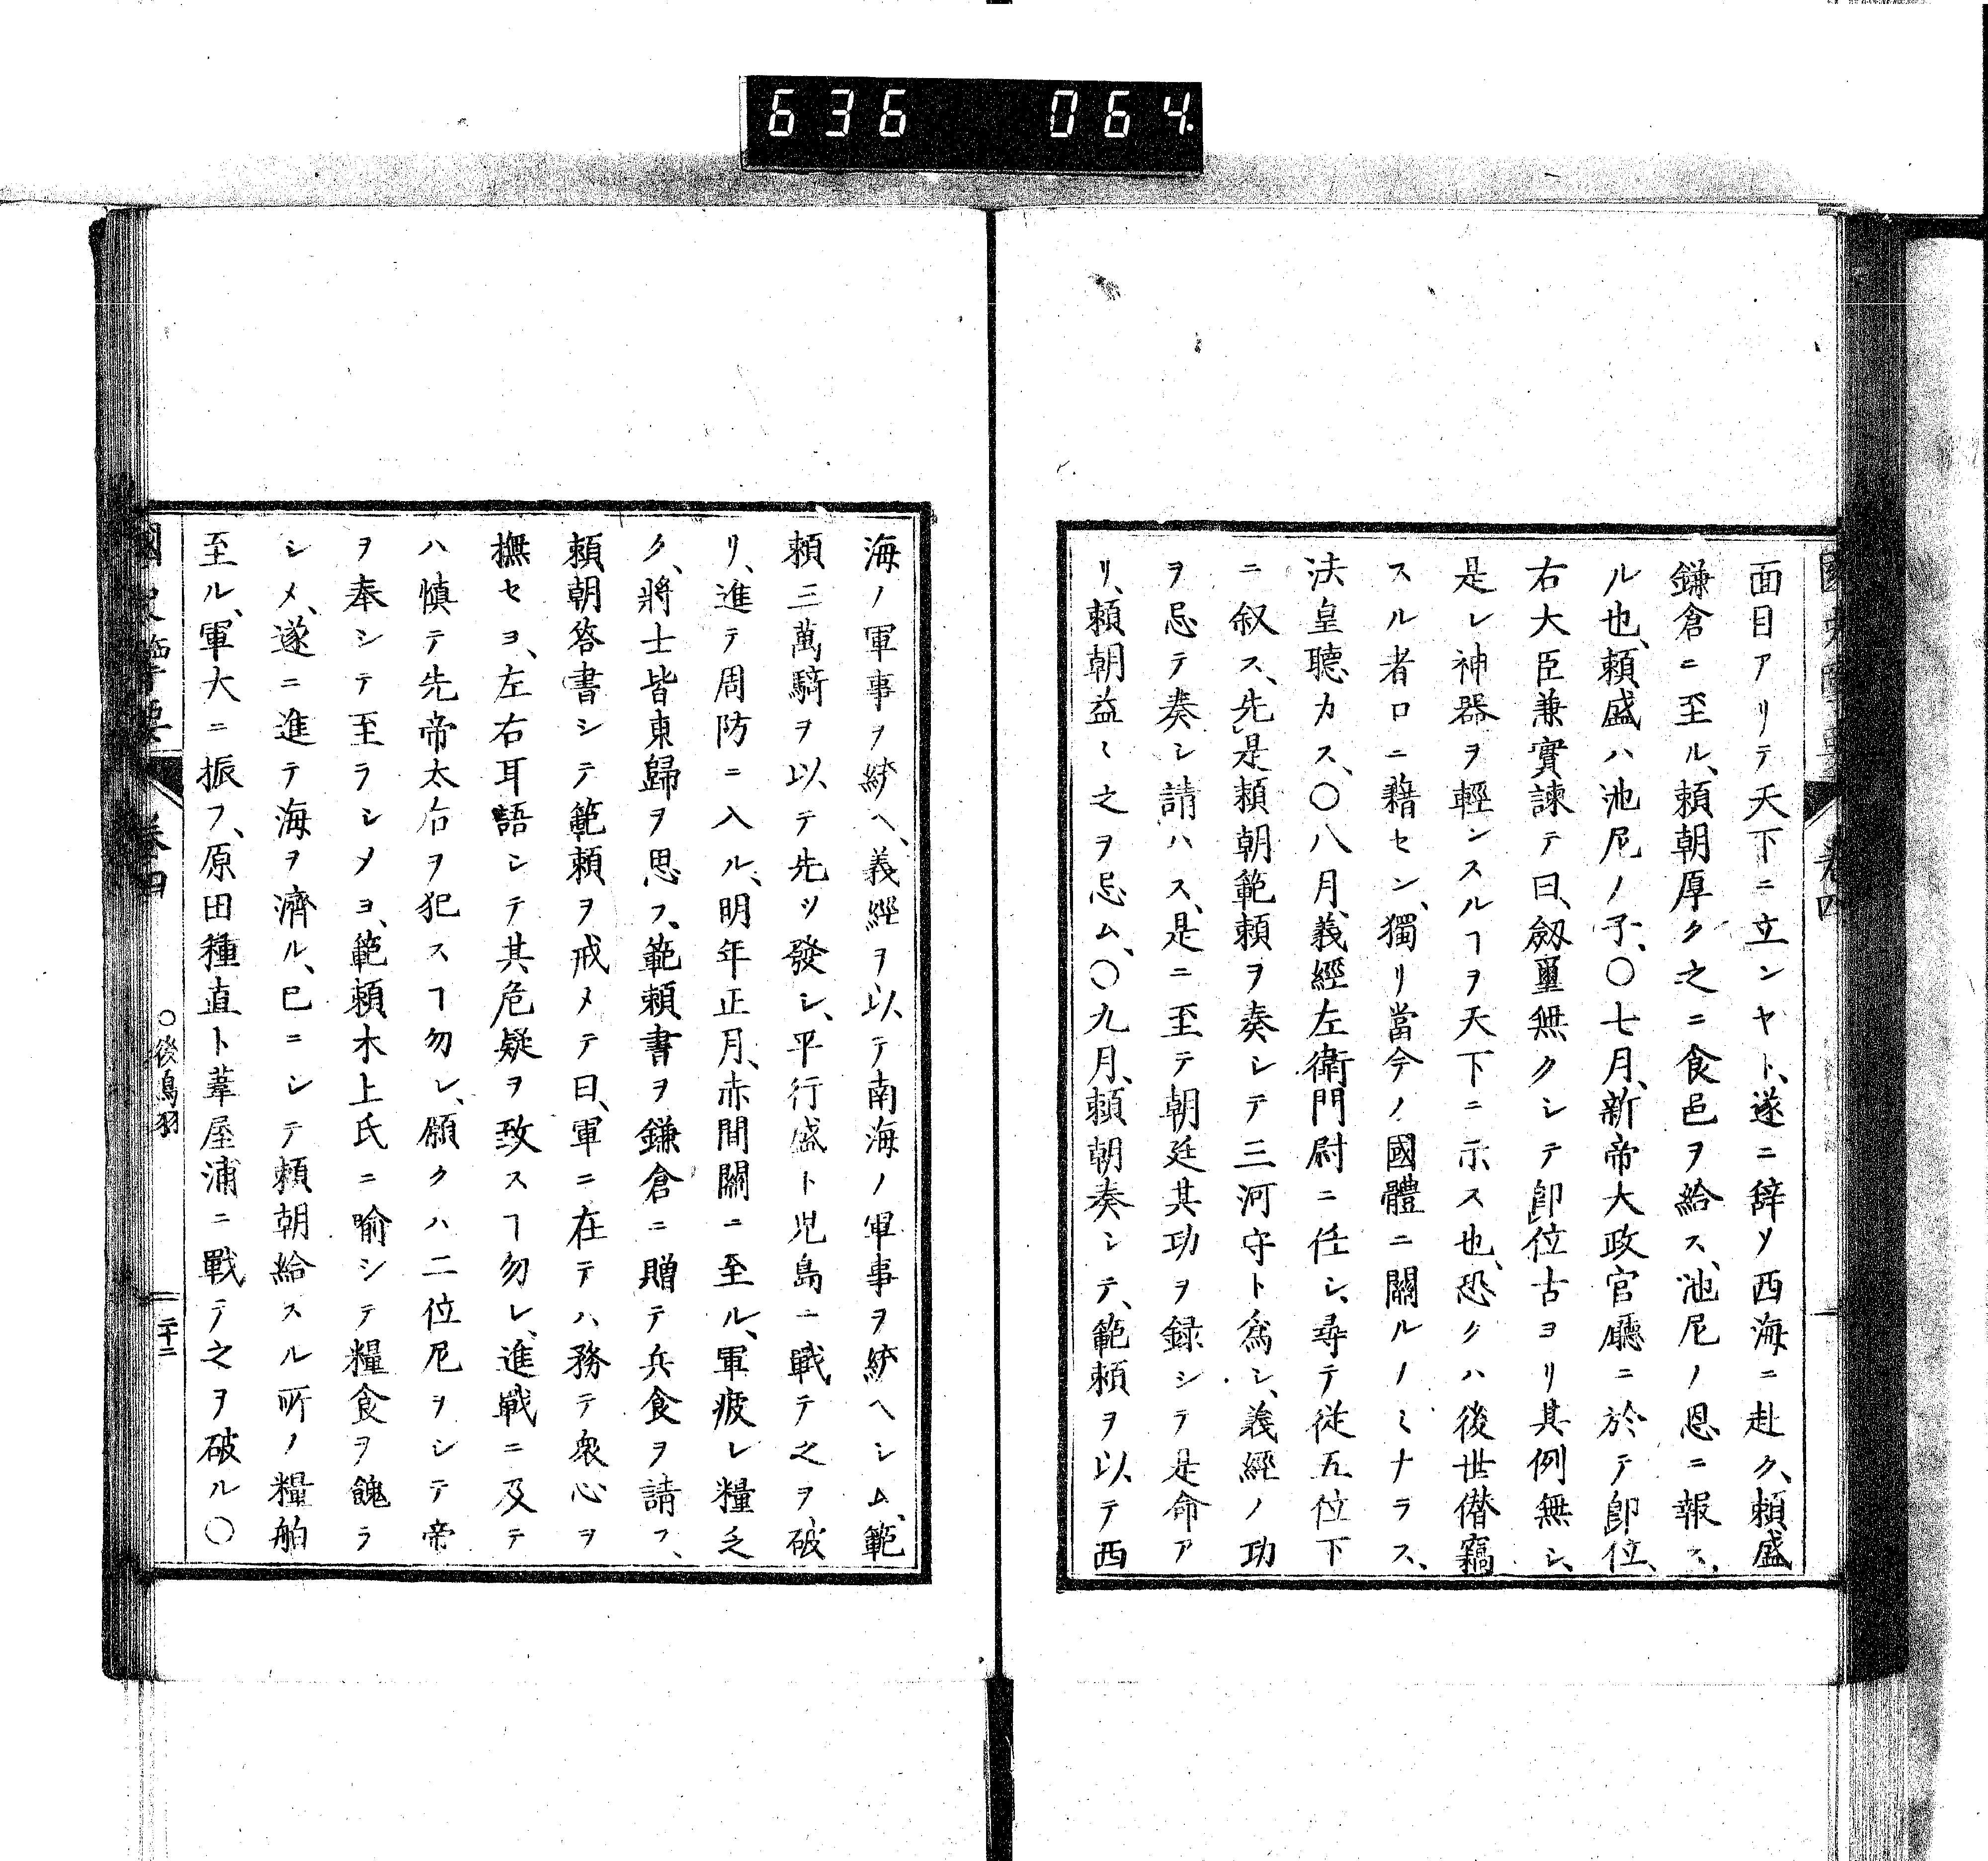 636 064
面目アリテ天下ニ立ンヤト、遂ニ辞ソ西海ニ赴ク、頼盛
鎌倉ニ至ル、頼朝厚ク之ニ食邑ヲ給ス、池尼ノ恩ニ報ス、
ル也、頼盛ハ池尼ノ子、〇七月、新帝大政官廳ニ於テ即位、
右大臣兼實諫テ曰、劔璽無クシテ即位古ヨリ其例無シ、
是レ神器ヲ輕ンスルヿヲ天下ニ示ス也、恐クハ後世僣竊
スル者口ニ藉セン、獨リ當今ノ國體ニ關ルノミナラス、
法皇聽カス、〇八月、義經左衛門尉ニ任シ、尋テ従五位下
ニ叙ス、先是頼朝範頼ヲ奏シテ三河守ト為シ、義經ノ功
ヲ忌テ奏シ請ハス、是ニ至テ朝廷其功ヲ録シテ是命ア
リ、頼朝益〻之ヲ忌ム、〇九月、頼朝奏シテ、範頼ヲ以テ西
海ノ軍事ヲ統ヘ、義經ヲ以テ南海ノ軍事ヲ統ヘシム、範
頼三萬騎ヲ以テ先ツ發シ、平行盛ト児島ニ戰テ之ヲ破
リ、進テ周防ニ入ル、明年正月、赤間關ニ至ル、軍疲レ糧乏
ク、將士皆東歸ヲ思フ、範頼書ヲ鎌倉ニ贈テ兵食ヲ請フ、
頼朝答書シテ範頼ヲ戒メテ曰、軍ニ在テハ務テ衆心ヲ
撫セヨ、左右耳語シテ其危疑ヲ致スヿ勿レ、進戰ニ及テ
ハ慎テ先帝太后ヲ犯スヿ勿レ、願クハ二位尼ヲシテ帝
ヲ奉シテ至ラシメヨ、範頼木上氏ニ喻シテ糧食ヲ餽ラ
シメ、遂ニ進テ海ヲ濟ル、已ニシテ頼朝給スル所ノ糧舶
至ル、軍大ニ振フ、原田種直ト葦屋浦ニ戰テ之ヲ破ル〇
國史 要 卷四 〇後鳥羽 二十二